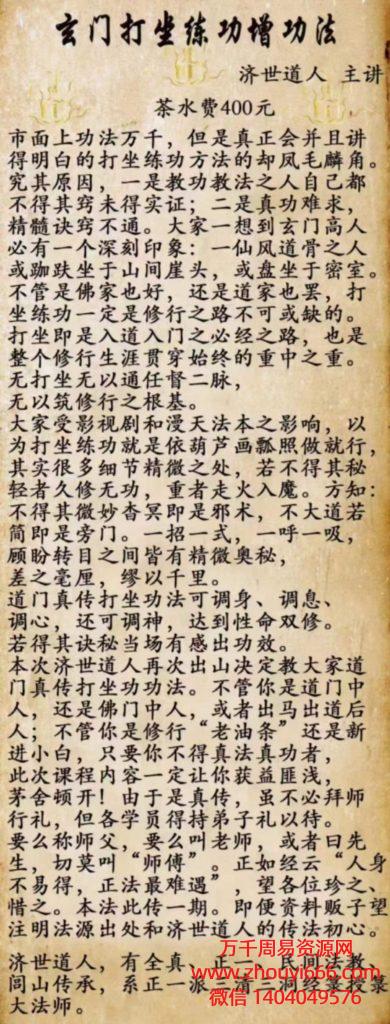 玄门打坐练功增功法
济世道人 主讲
茶水费400元
市面上功法万千，但是真正会并且讲
得明白的打坐练功方法的却凤毛麟角。
究其原因，一是教功教法之人自己都
不得其窍未得实证；二是真功难求，
精髓诀窍不通。大家一想到玄门高人
必有一个深刻印象：一仙风道骨之人
或跏趺坐于山间崖头，或盘坐于密室。
不管是佛家也好，还是道家也罢，打
坐练功一定是修行之路不可或缺的。
打坐即是入道入门之必经之路，也是
整个修行生涯贯穿始终的重中之重。
无打坐无以通任督二脉，
无以筑修行之根基。
大家受影视剧和漫天法本之影响，以
为打坐练功就是依葫芦画瓢照做就行，
其实很多细节精微之处，若不得其秘
轻者久修无功，重者走火入魔。方知：
不得其微妙杳冥即是邪术，不大道若
简即是旁门。一招一式，一呼一吸，
顾盼转目之间皆有精微奥秘，
差之毫厘，缪以千里。
道门真传打坐功法可调身、调息、
调心，还可调神，达到性命双修。
若得其诀秘当场有感出功效。
本次济世道人再次出山决定教大家道
门真传打坐功功法。不管你是道门中
人，还是佛门中人，或者出马出道后
人；不管你是修行“老油条”还是新
进小白，只要你不得真法真功者，
此次课程内容一定让你获益匪浅，
茅舍顿开！由于是真传，虽不必拜师
行礼，但各学员得持弟子礼以待。
要么称师父，要么叫老师，或者曰先
生，切莫叫“师傅”。正如经云“人身
不易得，正法最难遇”，望各位珍之、
惜之。本法此传一期。即便资料贩子望
注明法源出处和济世道人的传法初心。
济世道人，有全真、正一、民间法教、
闾山传承，系正一派三清三洞经箓授箓
大法师。
万千周易资源网
www.zhouyi666.com
微信 1404049576